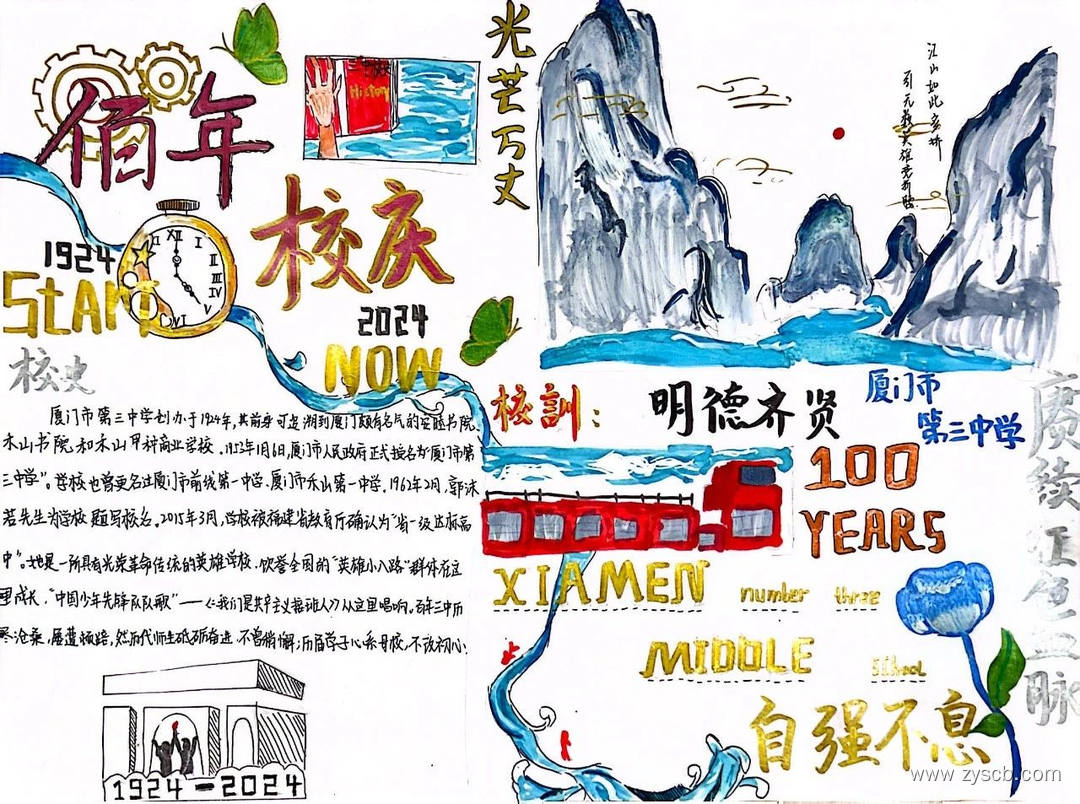 佰年
校庆
History
1924
START
2024
NOW
XII
I
II
III
IV
V
VI
校史
厦门市第三中学创办于1924年,其前身可追溯到厦门颇有名气的
禾山书院和禾山甲种商业学校。1952年1月6日,厦门市人民政府正式接名为"厦门市第
三中学"。学校也曾更名过厦门市前线第一中学、厦门市禾山第一中学。1962年2月,郭沫
若先生为学校题写校名。2015年3月,学校被福建省教育厅确认为"省一级达标高
中"。她是一所具有光荣革命传统的英雄学校,饮誉全国的"英雄小八路"群体在这
里成长,"中国少年先锋队队歌"——《我们是共产主义接班人》从这里唱响。百年三中历
寒沧桑,屡遭倾踣,然历代师生砥砺奋进,不曾稍懈;历届学子心系母校,不改初心!
1924-2024
光芒万丈
江山如此多娇
引无数英雄竞折腰
校訓:
明德齐贤
厦门市
第三中学
100
YEARS
XIAMEN number three
MIDDLE school
自强不息
赓续红色血脉
www.zyscb.com